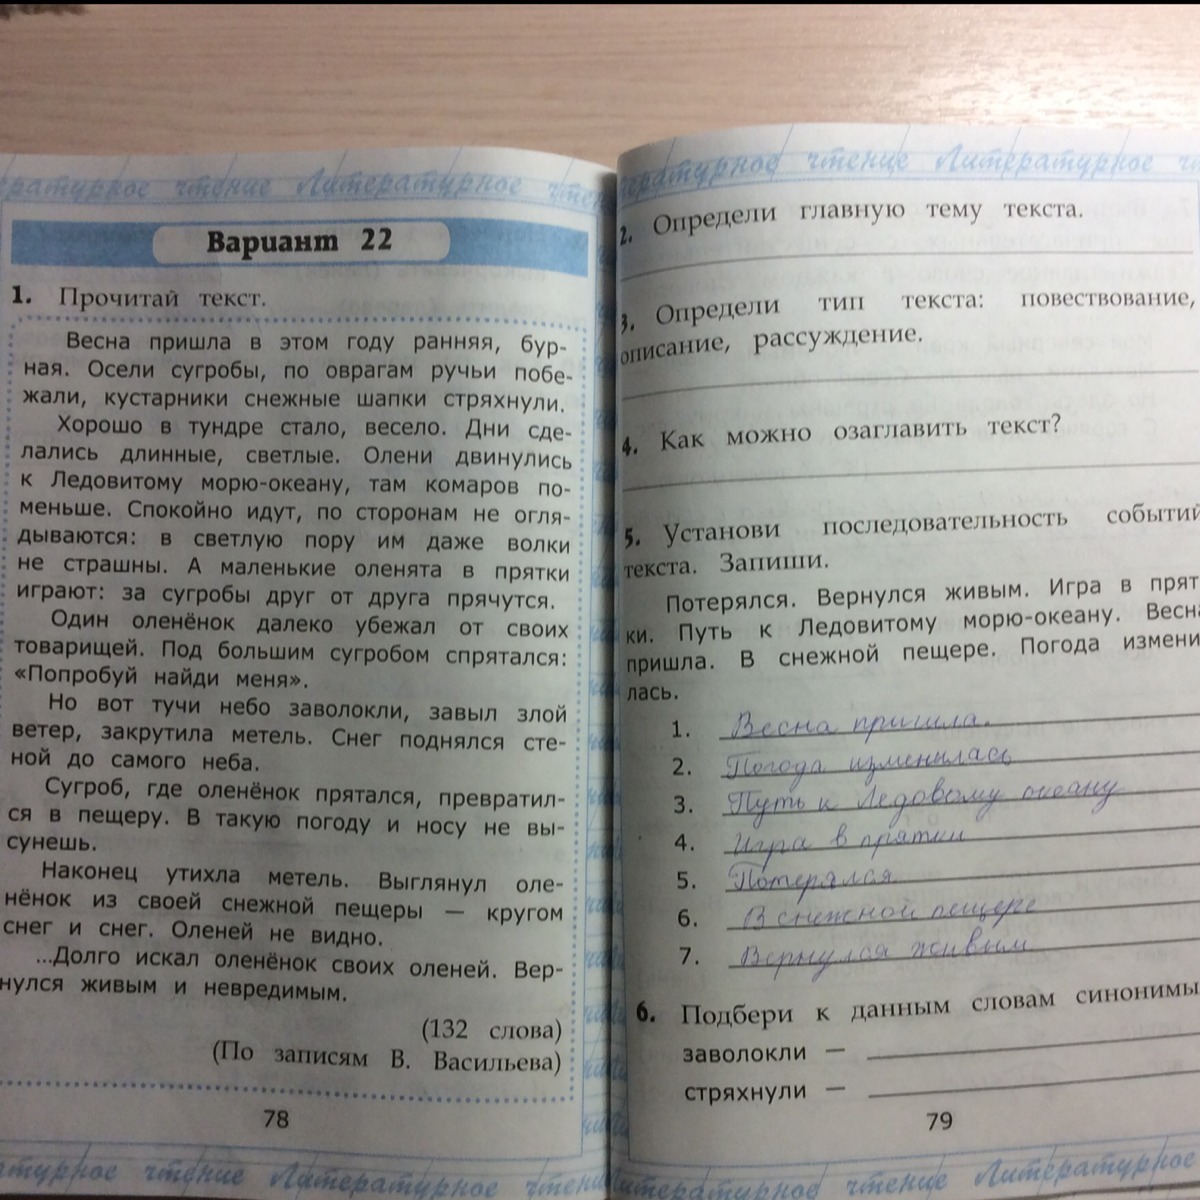 ературное чтение Литературное чтен
Вариант 22
1. Прочитай текст.
Весна пришла в этом году ранняя, бур-
ная. Осели сугробы, по оврагам ручьи побе-
жали, кустарники снежные шапки стряхнули.
Хорошо в тундре стало, весело. Дни сде-
лались длинные, светлые. Олени двинулись
к Ледовитому морю-океану, там комаров по-
меньше. Спокойно идут, по сторонам не огля-
дываются: в светлую пору им даже волки
не страшны. А маленькие оленята в прятки
играют: за сугробы друг от друга прячутся.
Один оленёнок далеко убежал от своих
товарищей. Под большим сугробом спрятался:
«Попробуй найди меня».
Но вот тучи небо заволокли, завыл злой
ветер, закрутила метель. Снег поднялся сте-
ной до самого неба.
Сугроб, где оленёнок прятался, превратил-
ся в пещеру. В такую погоду и носу не вы-
сунешь.
Наконец утихла метель. Выглянул оле-
нёнок из своей снежной пещеры — кругом
снег и снег. Оленей не видно.
...Долго искал оленёнок своих оленей. Вер-
нулся живым и невредимым.
(132 слова)
(По записям В. Васильева)
78
атурное чтение Литературное чтени
литературное чтение Литературное
2. Определи главную тему текста.
3. Определи тип текста: повествование,
описание, рассуждение.
4. Как можно озаглавить текст?
5. Установи последовательность событий
текста. Запиши.
Потерялся. Вернулся живым. Игра в прят-
ки. Путь к Ледовитому морю-океану. Весна
пришла. В снежной пещере. Погода измени-
лась.
1. Весна пришла.
2. Погода изменилась
3. Путь к Ледовому океану
4. Игра в прятки
5. Потерялся
6. В снежной пещере
7. Вернулся живым
6. Подбери к данным словам синонимы
заволокли —
стряхнули —
79
Литературное чтение Литературное